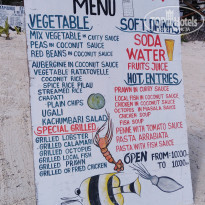 MENU
VEGETABLE
MIX VEGETABLE IN CURRY SAUCE
PEAS IN COCONUT SAUCE
RED BEANS IN COCONUT SAUCE
AUBERGINE IN COCONUT SAUCE
VEGETABLE RATATOVELLE
COCONUT RICE
SPICE RICE PILAU
STREAMED RICE
CHAPATI
PLAIN CHIPS
UGALI
KACHUMBARI SALAD
SPECIAL GRILLED
GRILLED LOBSTER
GRILLED CALAMARI
GRILLED OCTOPUS
GRILLED LOCAL FISH
GRILLED PRAWN
GRILLED OR FRIED CHICKEN
SOFT
SODA
WATER
FRUITS JUICE
HOT ENTRIES
PRAWN IN CURRY SAUCE
LOCAL FISH IN COCONUT SAUCE
CHICKEN IN COCONUT SAUCE
OCTOPUS IN COCONUT SAUCE
CHICKEN SOUP
FISH SOUP
PENNE WITH TOMATO SAUCE
PASTA ARRABIATA
PASTA WITH FISH SAUCE
OPEN FROM 10:00
TO 10:00